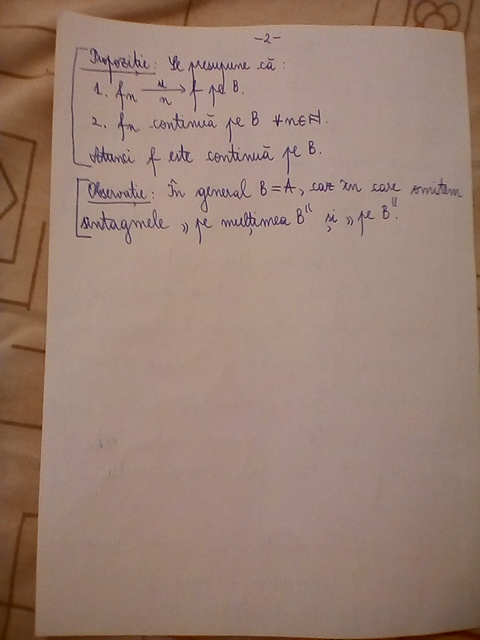 -2-
Propoziție: Se presupune că:
1. fn u→n f pe B.
2. fn continuă pe B ∀n∈ℕ.
Atunci f este continuă pe B.
Observație: În general B=A, caz în care omitem
sintagmele „pe mulțimea B" și „pe B".